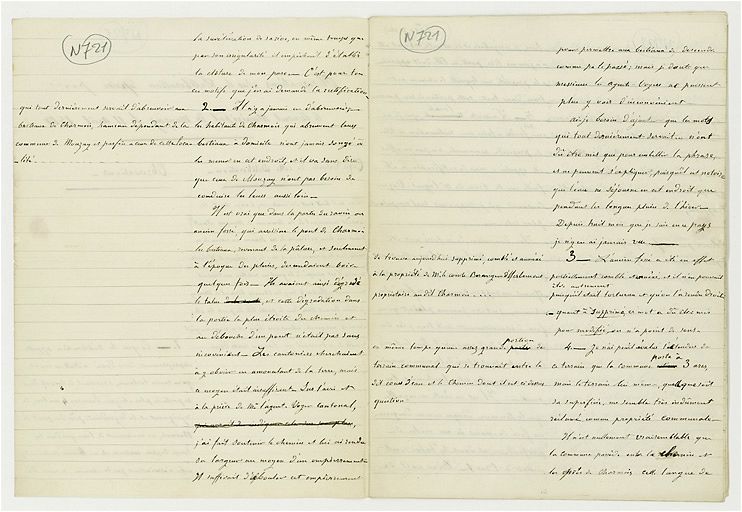 N721
la surélévation de
en même temps que
par son irrégularité et empêchait d'établir
la clôture de mon parc — C'est pour
ces motifs que j'en ai demandé la rectification
que tout dernièrement servait d'abreuvoir aux
bestiaux de Charmois, hameau dépendant de la
commune de Mouzay et parfois a ceux de cette loca-
-lité.
2 — Il n'y a jamais eu d'abreuvoir;
les habitants de Charmois qui abreuvent leurs
bestiaux à domicile n'ont jamais songé à
les mener en cet endroit, et il va sans dire
que ceux de Mouzay n'ont pas besoin de
conduire les leurs aussi loin —
Il est vrai que dans la partie du ravin ou
ancien fossé qui avoisine le pont de Charmois
les bestiaux, revenant de la pâture, et seulement
à l'époque des pluies, descendaient boire
quelque fois — Ils avaient ainsi dégradé
le talus et cette dégradation dans
la partie la plus étroite du chemin et
au débouché d'un pont n'était pas sans
inconvénient — Les cantonniers cherchaient
à y obvier en amoncelant de la terre, mais
ce moyen était insuffisant. Sur l'avis et
à la prière de Mr l'agent Voyer cantonal,
j'ai fait soutenir le chemin et lui ai rendu
sa largeur au moyen d'un empierrement
Il suffirait d'ébouler cet empierrement
N721
pour permettre aux bestiaux de descendre
comme par le passé; mais je doute que
messieurs les agents Voyers ne puissent
plus y voir d'inconvénient.
ai-je besoin d'ajouter que les mots
qui tout dernièrement servait n'ont
dû être mis que pour embellir la phrase,
et ne peuvent s'expliquer, puisqu'il est notoire
que l'eau ne séjourne en cet endroit que
pendant les longues pluies de l'hiver —
Depuis huit mois que je suis en ce pays
je n'y en ai jamais vue —
se trouve aujourd'hui supprimé, comblé et annexé
à la propriété de Mr le comte
propriétaire audit Charmois ...
3 — L'ancien fossé a été en effet
partiellement comblé et annexé, et il n'en pouvait
être autrement
puisqu'il était tortueux et qu'on l'a rendu droit
— quant à supprimé, ce mot a dû être mis
pour modifié, ou n'a point de sens —
en même temps qu'une assez grande portion de
terrain communal qui se trouvait entre le
dit cours d'eau et le chemin dont il est ci dessus
question
4 — Je n'ai point évalué l'étendue de
ce terrain que la commune porte à 3 ares,
mais le terrain lui même, quelque soit
sa superficie, me semble très indûment
réclamé comme propriété communale —
Il n'est nullement vraisemblable que
la commune possède entre le chemin et
les de Charmois cette langue de